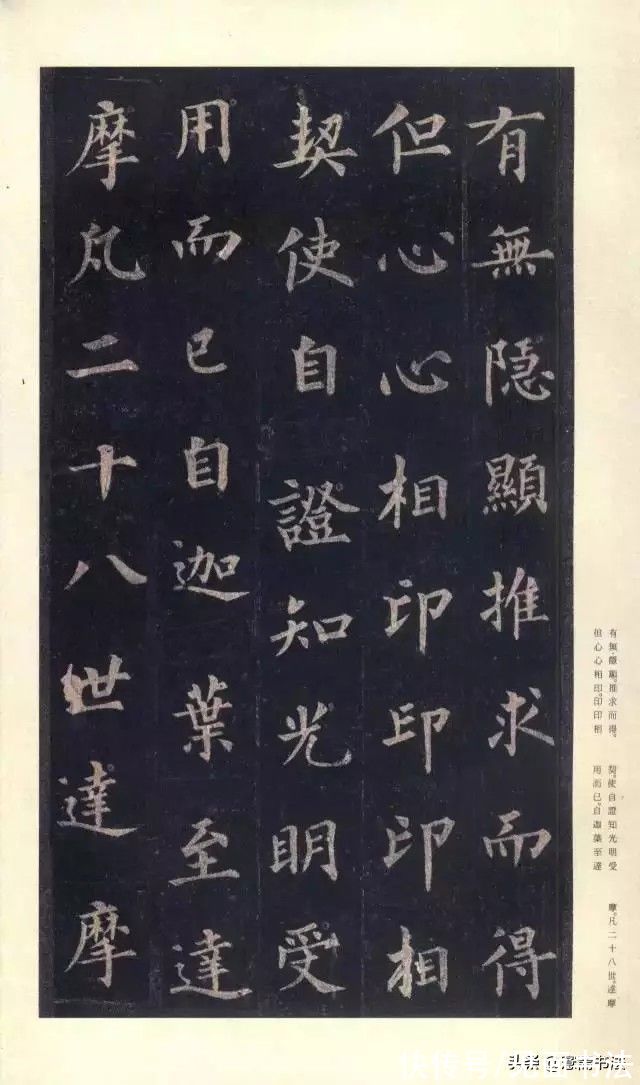 有無隱顯推求而得
但心心相印印印相
契使自證知光明受
用而已自迦葉至達
摩凡二十八世達摩
有無隱顯。推求而得。
但心心相印。印印相
契。使自證知光明受
用而已。自迦葉至達
摩。凡二十八世。達摩
快传号/
头条 书法